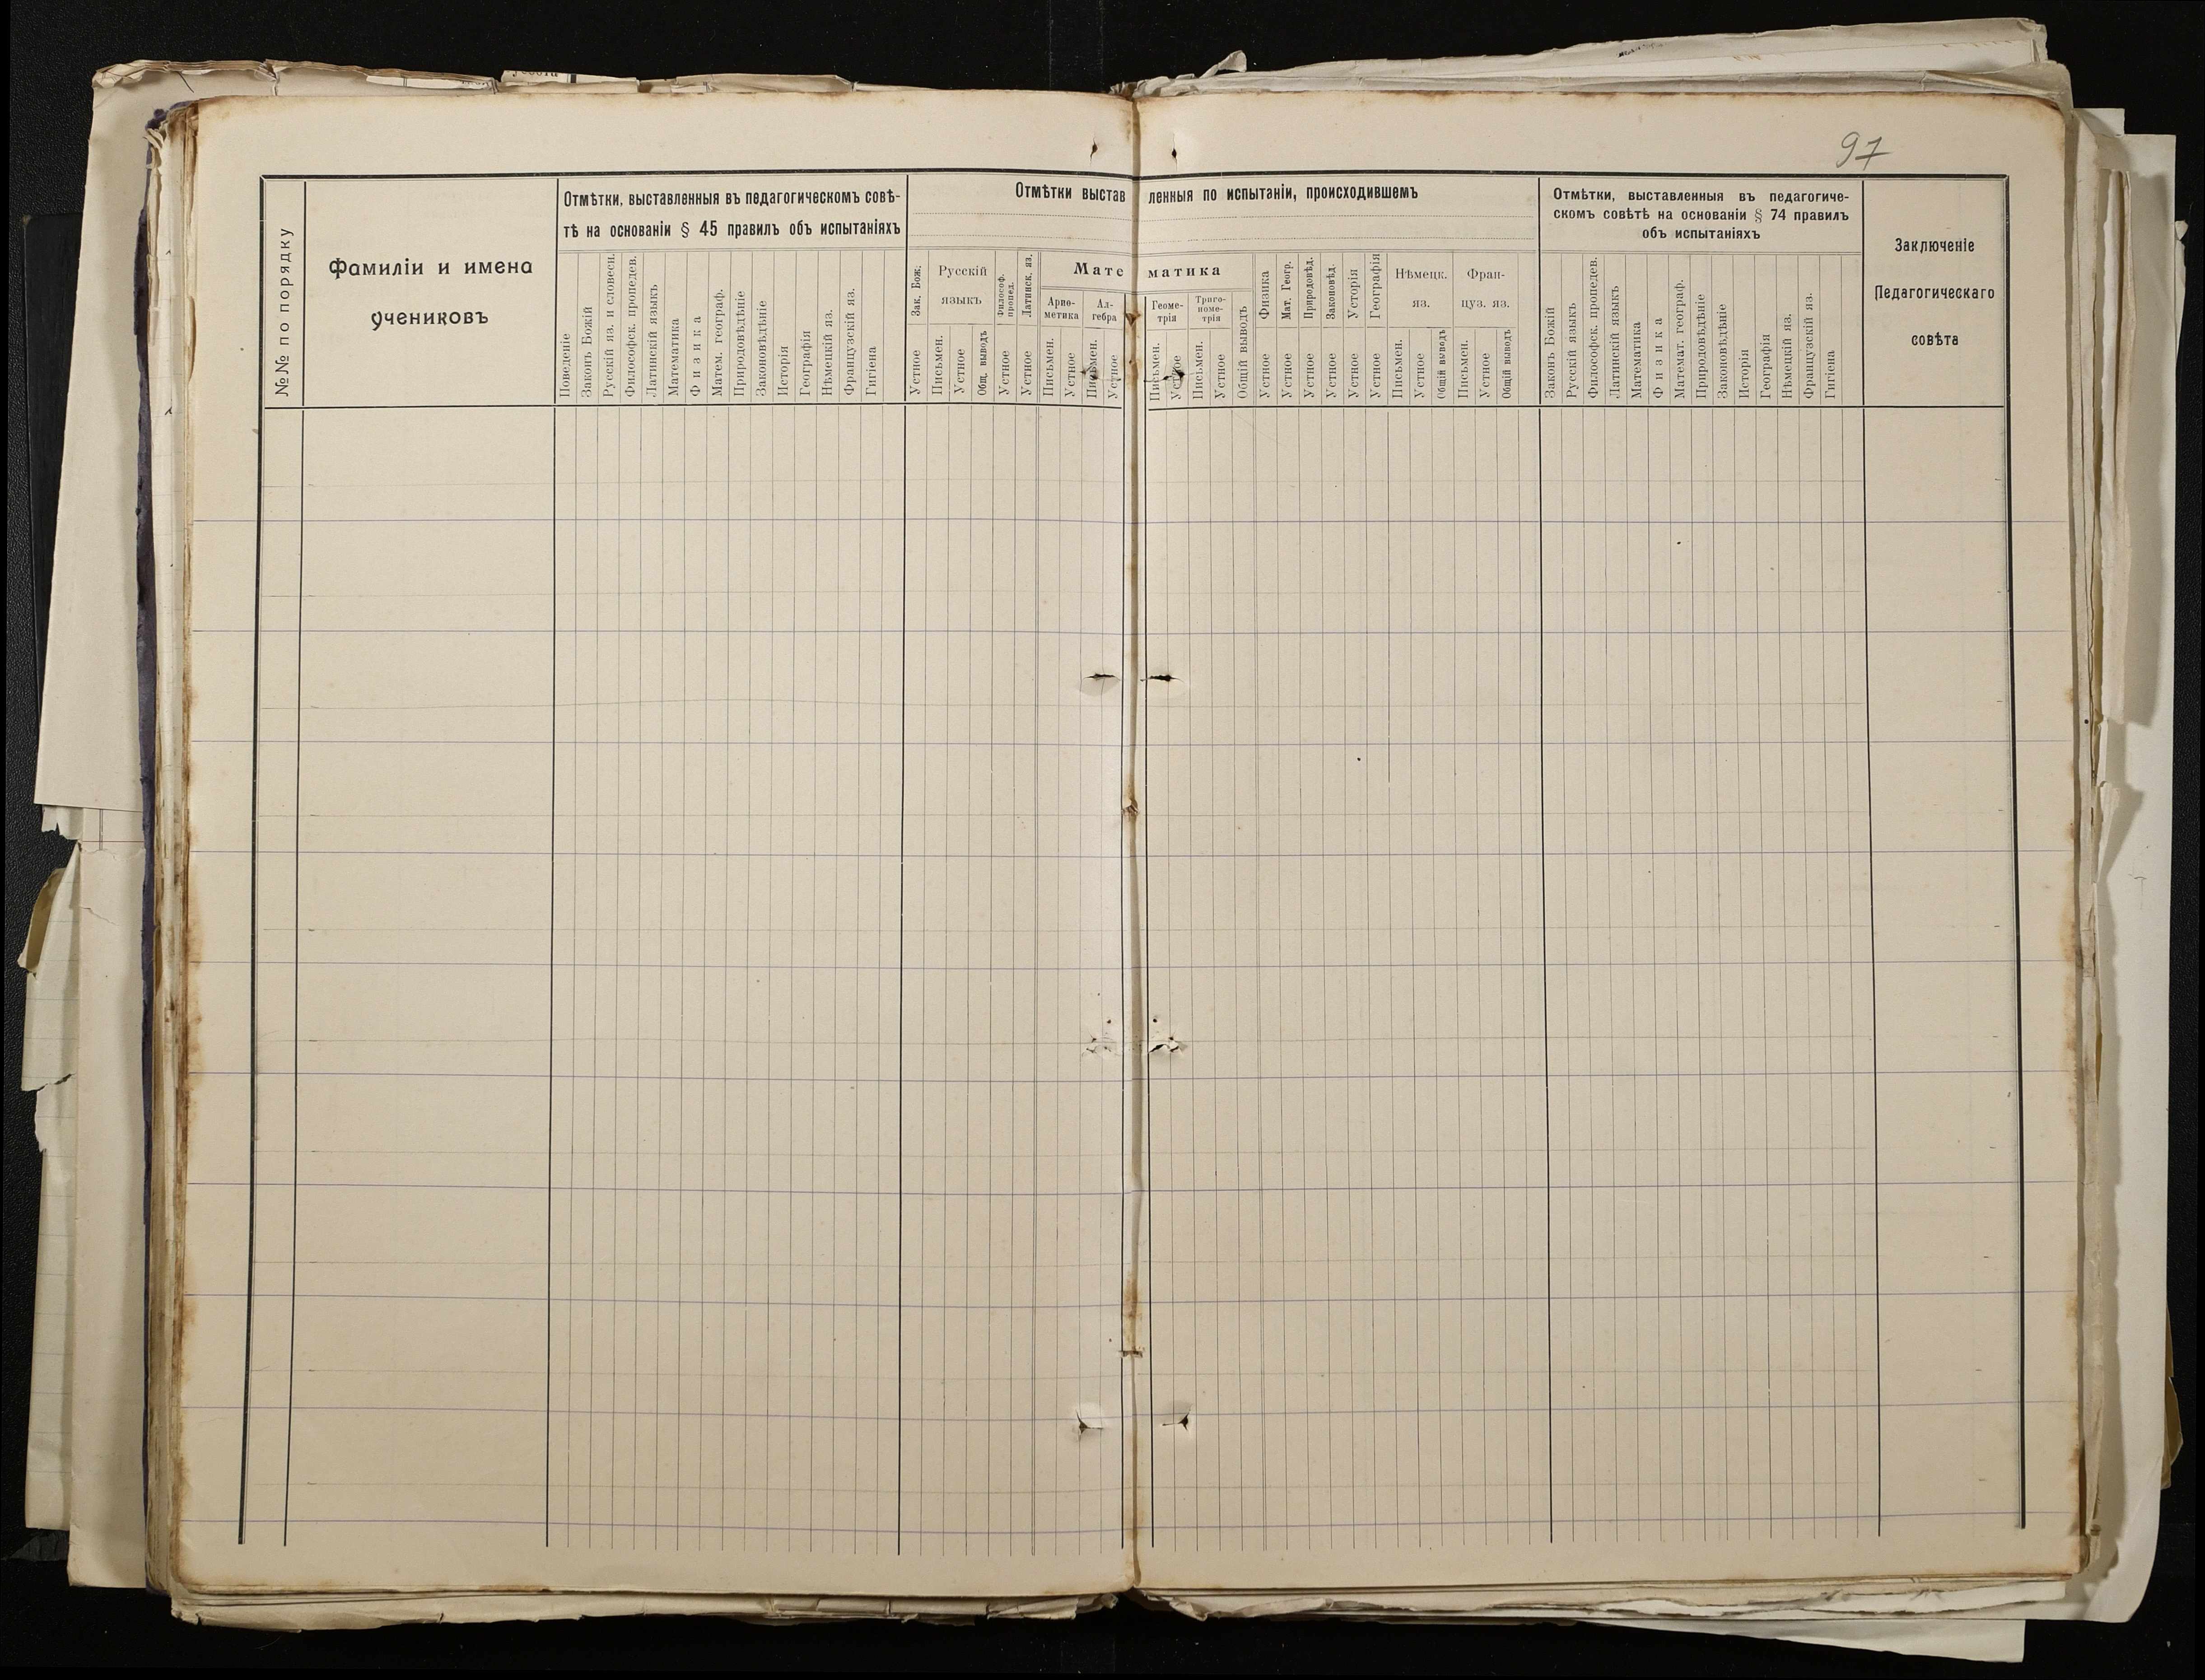 97
№№ по порядку
Фамиліи и имена
учениковъ
Отмѣтки, выставленныя въ педагогическомъ совѣ-
тѣ на основаніи § 45 правилъ объ испытаніяхъ
Поведеніе
Законъ Божій
Русскій яз. и словесн.
Философск. пропедев.
Латинскій языкъ
Математика
Физика
Матем. географ.
Природовѣдѣніе
Законовѣдѣніе
Исторія
Географія
Нѣмецкій яз.
Французскій яз.
Гигіена
Отмѣтки выставленныя по испытаніи, происходившемъ
Зак. Бож.
Устное
Русскій
языкъ
Письмен.
Устное
Общ. выводъ
Философ.
пропед.
Устное
Латинск. яз.
Устное
Математика
Ариѳ-
метика
Письмен.
Устное
Ал-
гебра
Письмен.
Устное
Геоме-
трія
Письмен.
Устное
Триго-
номе-
трія
Письмен.
Устное
Общій выводъ
Физика
Устное
Мат. Геогр.
Устное
Природовѣд.
Устное
Законовѣд.
Устное
Исторія
Устное
Географія
Устное
Нѣмецк.
яз.
Письмен.
Устное
Общій выводъ
Фран-
цуз. яз.
Письмен.
Устное
Общій выводъ
Отмѣтки, выставленныя въ педагогиче-
скомъ совѣтѣ на основаніи § 74 правилъ
объ испытаніяхъ
Законъ Божій
Русскій языкъ
Философск. пропедев.
Латинскій языкъ
Математика
Физика
Математ. географ.
Природовѣдѣніе
Законовѣдѣніе
Исторія
Географія
Нѣмецкій яз.
Французскій яз.
Гигіена
Заключеніе
Педагогическаго
совѣта